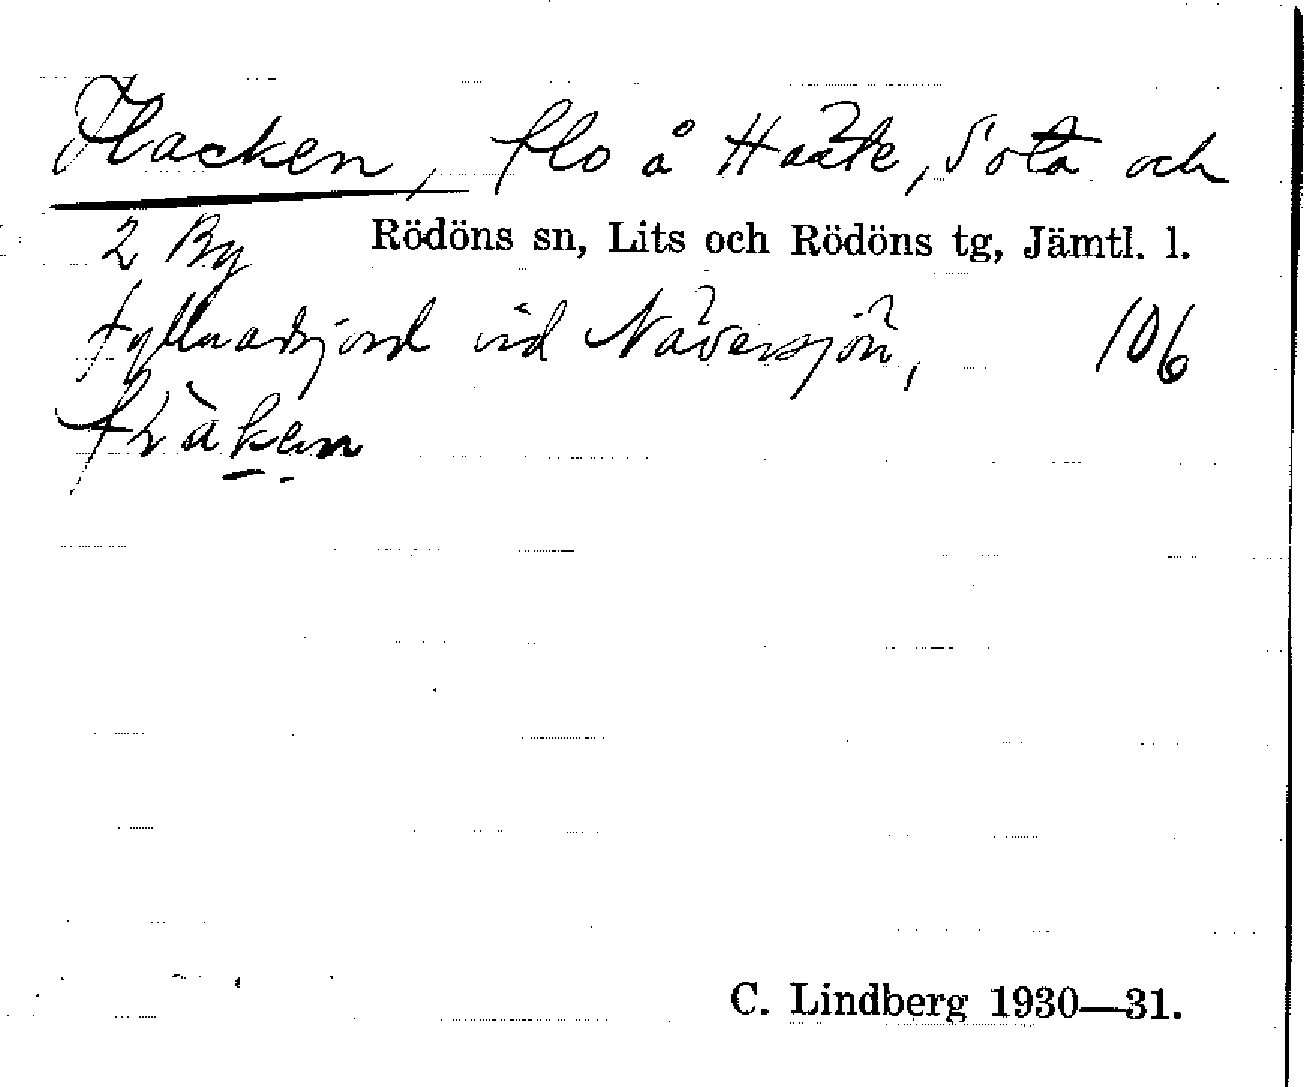 Flacken, flo å Haåte, Sota och
2 By Rödöns sn, Lits och Rödöns tg, Jämtl. l.
fyllnadsjord vid Näversjön, 106
fräken
C. Lindberg 1930—31.